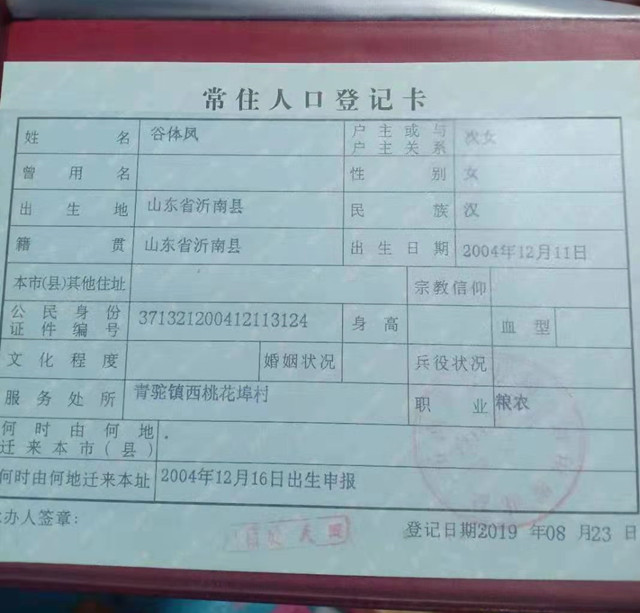 常住人口登记卡
姓名 谷体凤 户主或与户主关系 次女
曾用名 性别 女
出生地 山东省沂南县 民族 汉
籍贯 山东省沂南县 出生日期 2004年12月11日
本市(县)其他住址 宗教信仰
公民身份证件编号 371321200412113124 身高 血型
文化程度 婚姻状况 兵役状况
服务处所 青驼镇西桃花埠村 职业 粮农
何时由何地迁来本市(县)
何时由何地迁来本址 2004年12月16日出生申报
办人签章: 登记日期2019年08月23日